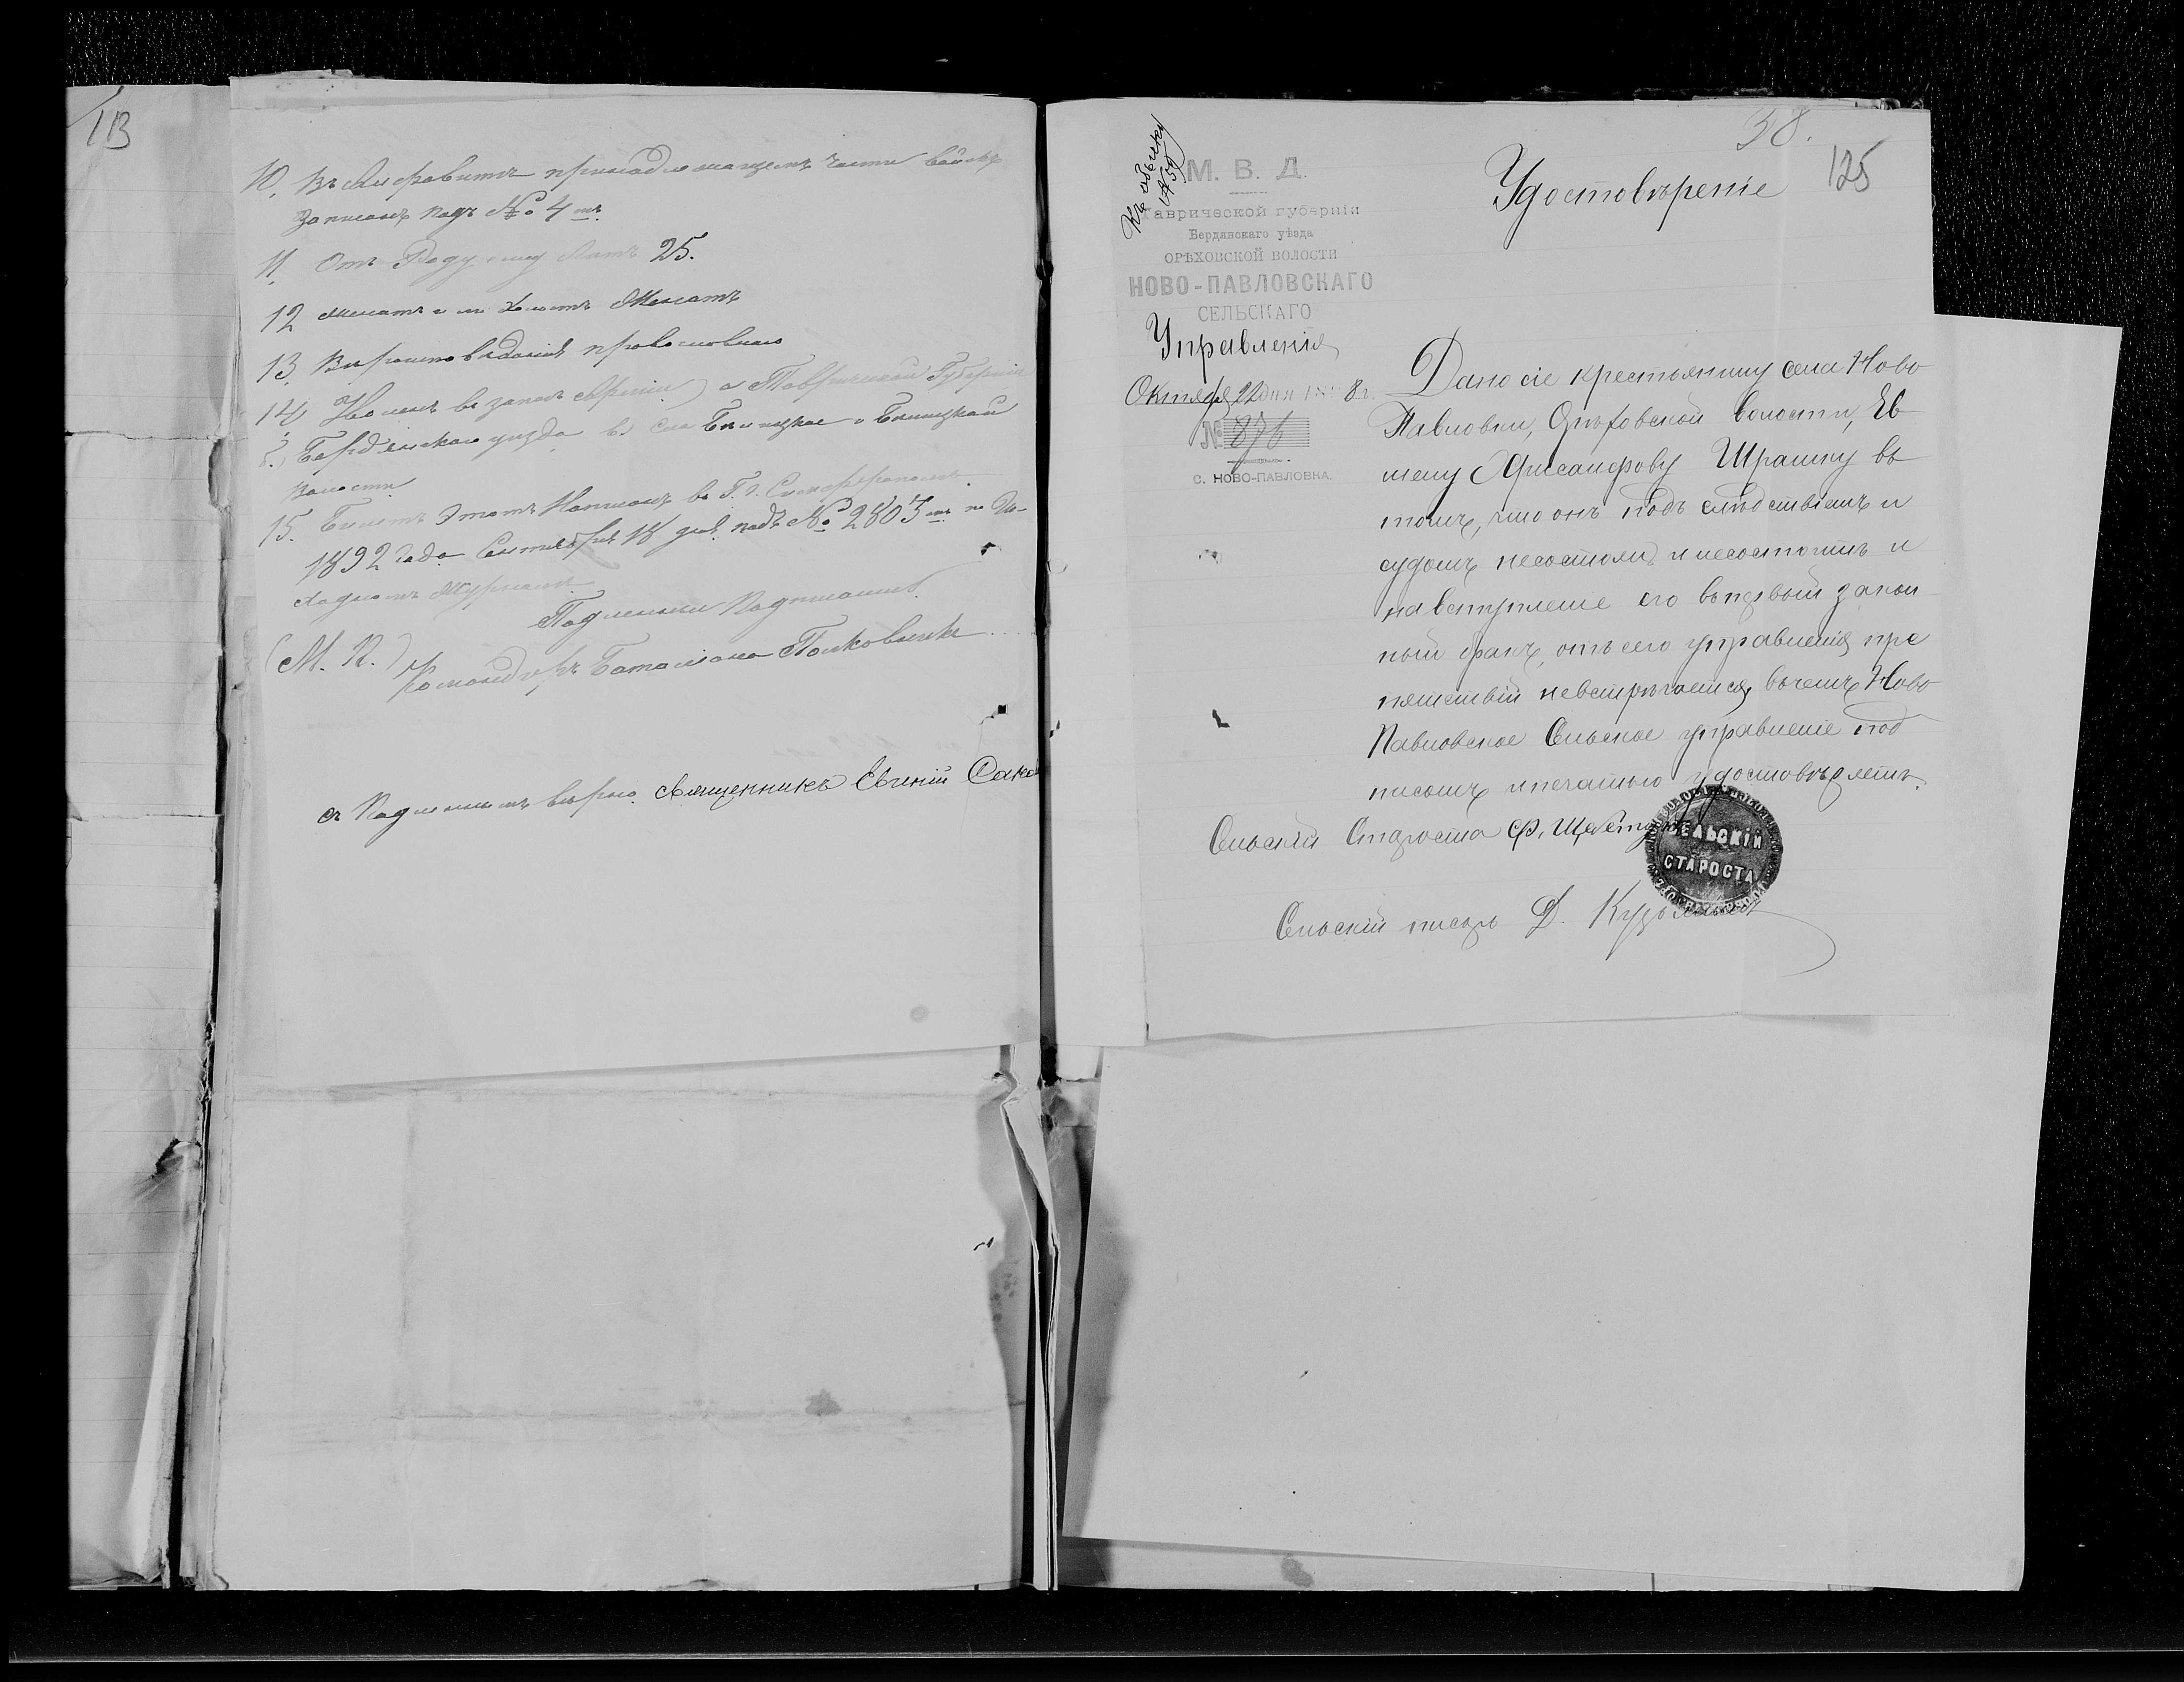 113
10. Въ Алфавитѣ принадлежащемъ части войскъ
записанъ подъ № 4 мъ
11. Отъ Роду ему Лѣтъ 25.
12 Женатъ или Холостъ Женатъ
13. Вѣроисповѣданія православнаго
14 Уволенъ въ запасъ Арміи а) Таврической Губерніи
б.) Бердянскаго уѣзда, въ село
Волости
15. Билетъ Этотъ Написанъ въ Г. Симферополѣ
1892 Года Сентября 18 дня подъ № 2803 мъ по
Журналу
Подлинный Подписалъ
(М. П.) Командиръ Баталіона Полковникъ
съ Подлиннымъ вѣрно Священникъ Евгеній
58.
125
Къ обыску
№ 55
М. В. Д.
Таврической губерніи
Бердянскаго уѣзда
ОРѢХОВСКОЙ ВОЛОСТИ
НОВО-ПАВЛОВСКАГО
СЕЛЬСКАГО
Управленія
Октября 22 дня 1898 г.
№ 876
С. НОВО-ПАВЛОВКА.
Удостовѣреніе
Дано сіе крестьянину села Ново
Павловки, Орѣховской волости, Ев
мену Хрисанфову Шрамку въ
томъ, что онъ подъ слѣдствіемъ и
судомъ несостоялъ и несостоитъ и
на вступленіе его въ первый закон
ный бракъ, отъ сего управленія пре
пятствій невстрѣчается, въ чемъ Ново
Павловское Сельское управленіе под
писомъ и печатью удостовѣряетъ.
Сельскій Староста Ф.
СЕЛЬСКІЙ
СТАРОСТА
Сельскій писарь Д.